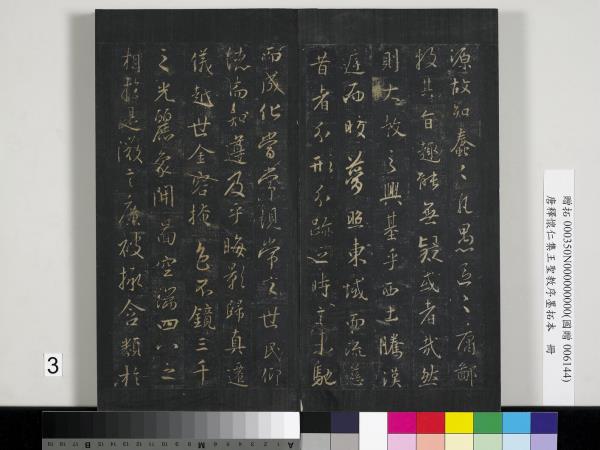 源故知蠢〻凡愚區〻庸鄙
投其旨趣能無疑或者哉然
則大教之興基乎西土騰漢
庭而皎夢照東域而流慈
昔者分形分跡之時言未馳
而成化當常現常之世民仰
德而知遵及乎晦影歸真遷
儀越世金容掩色不鏡三千
之光麗象開圖空端四八之
相於是微言廣被拯含類於
贈拓 000350N000000000(國贈 006144)
唐釋懷仁集王聖教序墨拓本 冊
3
A 1 2 3 4 5 6 M 8 9 10 11 12 13 14 15 B 17 18 19